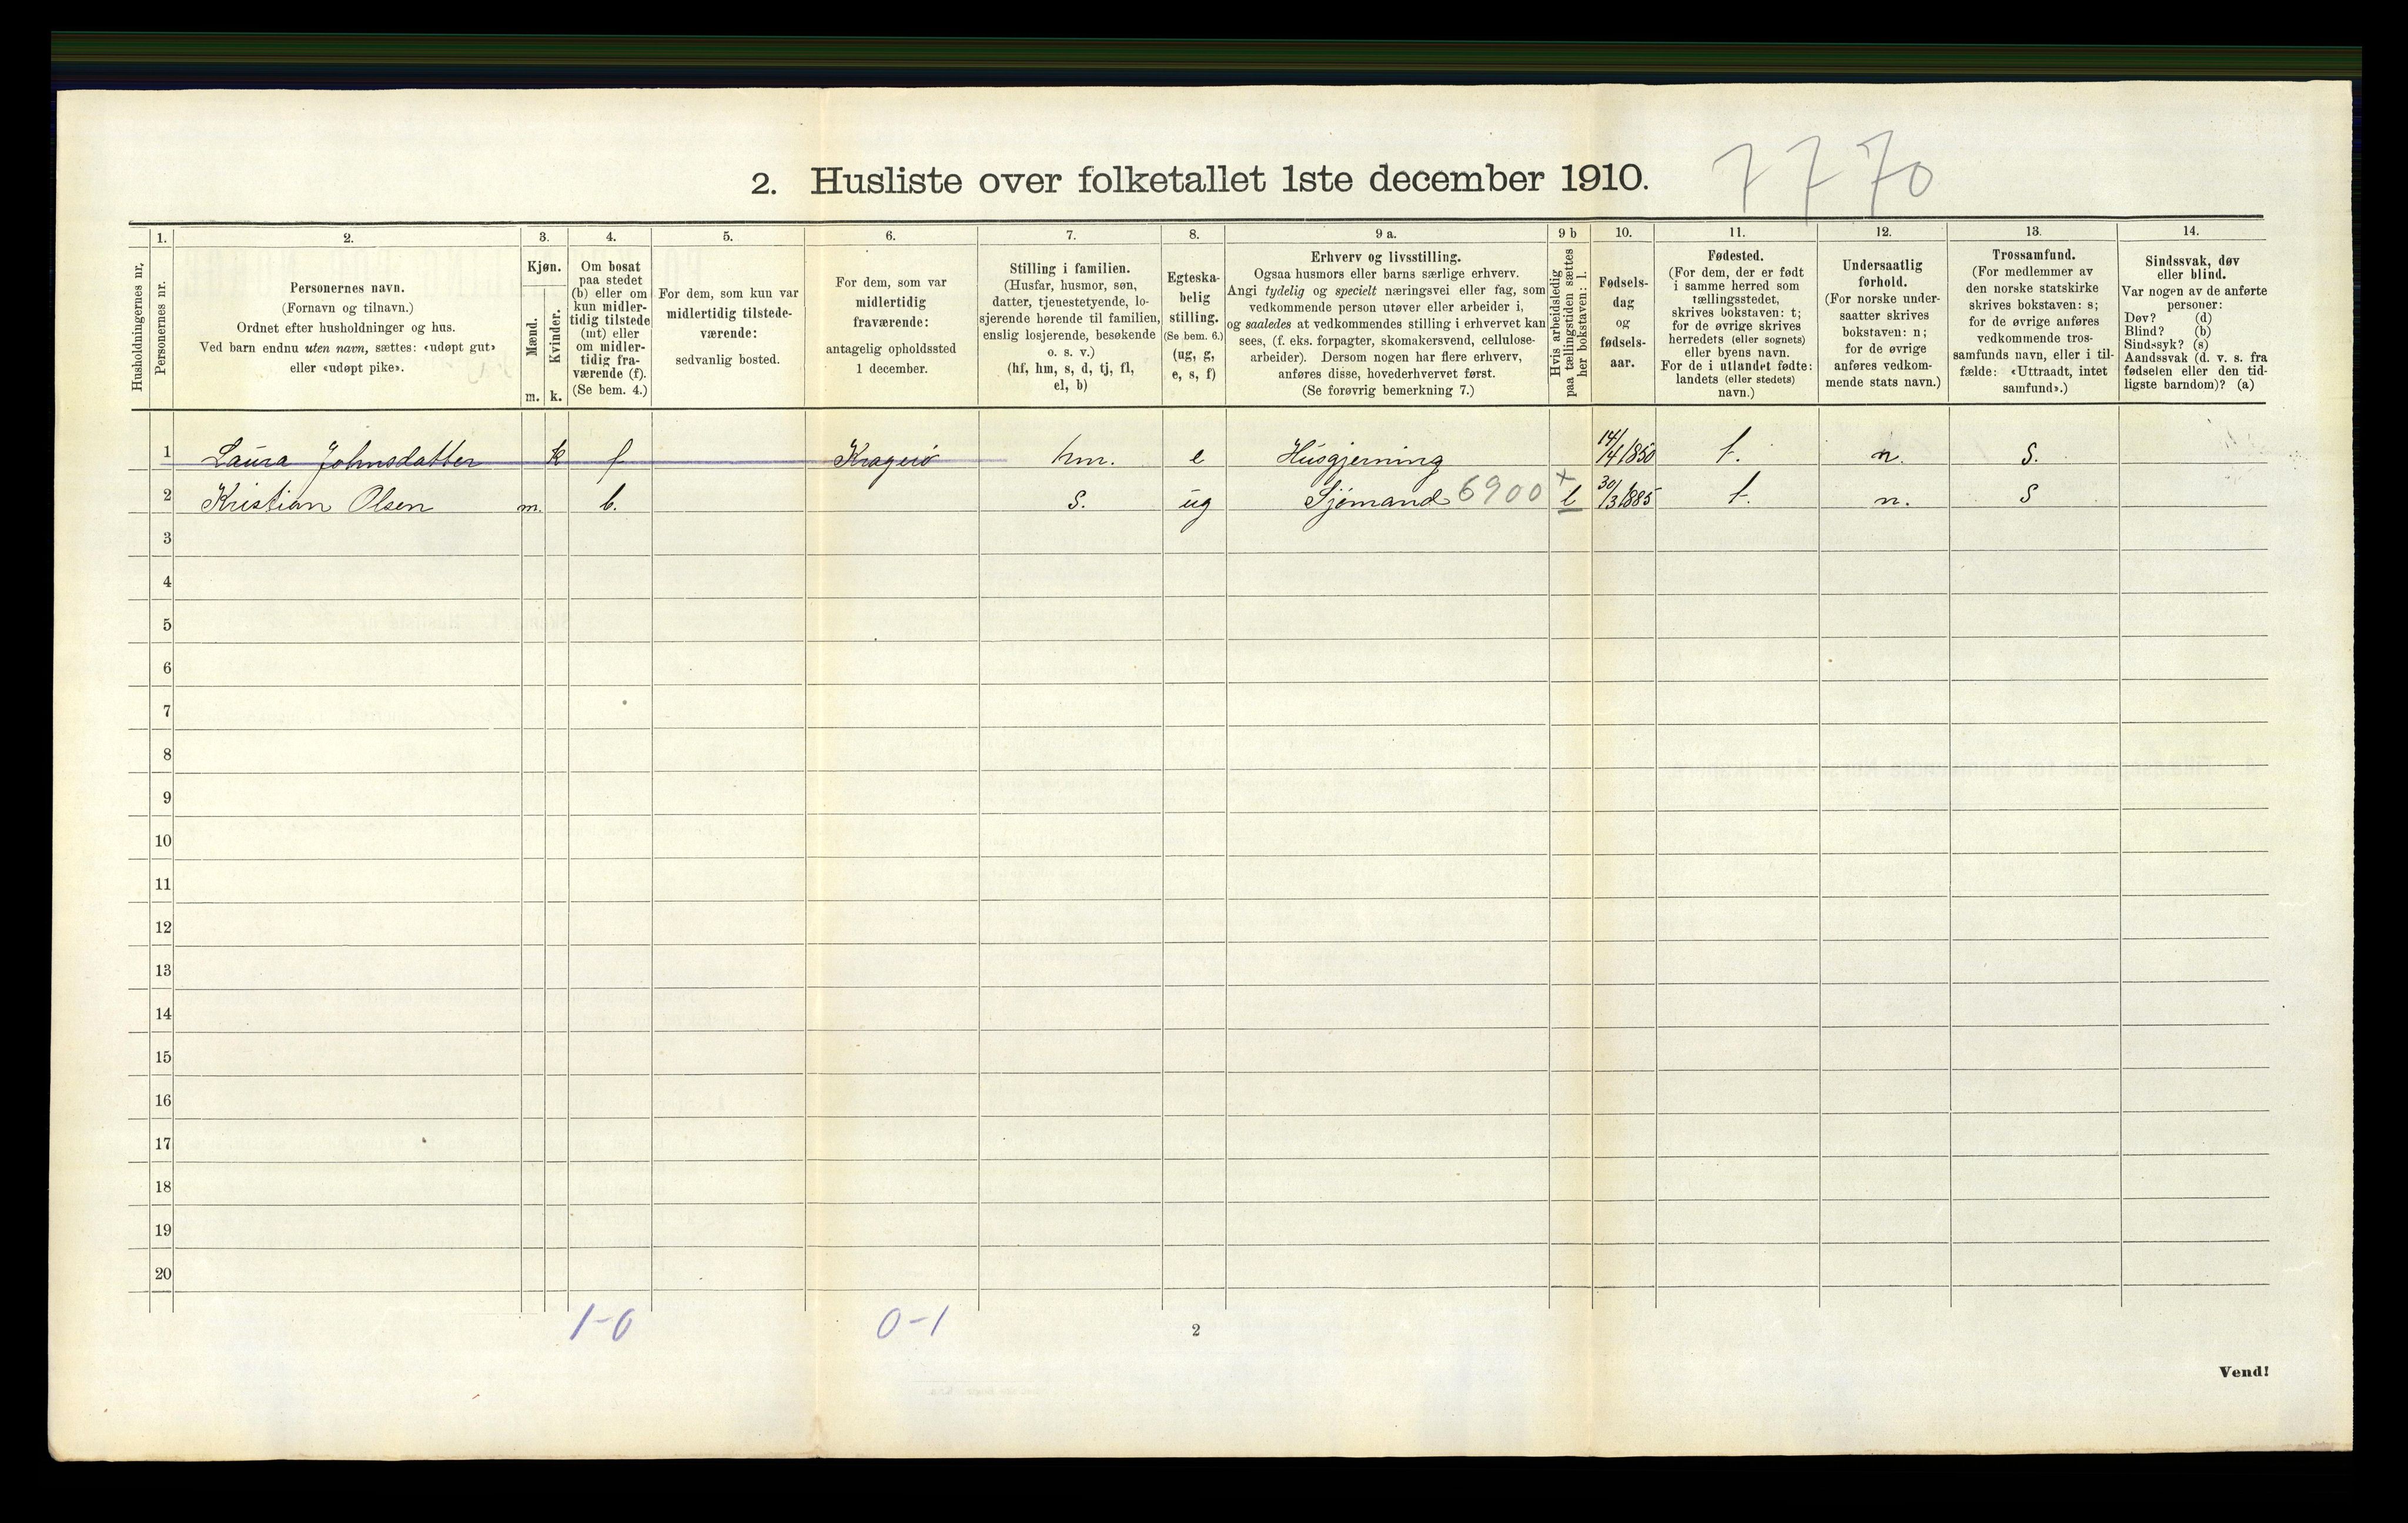 2. Husliste over folketallet 1ste december 1910.
7770
Husholdningernes nr.
1.
Personernes nr.
2.
Personernes navn.
(Fornavn og tilnavn.)
Ordnet efter husholdninger og hus.
Ved barn endnu uten navn, sættes: «udøpt gut»
eller «udøpt pike».
3.
Kjøn.
Mænd.
Kvinder.
m.
k.
4.
Om bosat
paa stedet
(b) eller om
kun midler-
tidig tilstede
(mt) eller
om midler-
tidig fra-
værende (f).
(Se bem. 4.)
5.
For dem, som kun var
midlertidig tilstede-
værende:
sedvanlig bosted.
6.
For dem, som var
midlertidig
fraværende:
antagelig opholdssted
1 december.
7.
Stilling i familien.
(Husfar, husmor, søn,
datter, tjenestetyende, lo-
sjerende hørende til familien,
enslig losjerende, besøkende
o. s. v.)
(hf, hm, s, d, tj, fl,
el, b)
8.
Egteska-
belig
stilling.
(Se bem. 6.)
(ug, g,
e, s, f)
9 a.
Erhverv og livsstilling.
Ogsaa husmors eller barns særlige erhverv.
Angi tydelig og specielt næringsvei eller fag, som
vedkommende person utøver eller arbeider i,
og saaledes at vedkommendes stilling i erhvervet kan
sees, (f. eks. forpagter, skomakersvend, cellulose-
arbeider). Dersom nogen har flere erhverv,
anføres disse, hovederhvervet først.
(Se forøvrig bemerkning 7.)
9 b
Hvis arbeidsledig
paa tællingstiden sættes
her bokstaven: l.
10.
Fødsels-
dag
og
fødsels-
aar.
11.
Fødested.
(For dem, der er født
i samme herred som
tællingsstedet,
skrives bokstaven: t;
for de øvrige skrives
herredets (eller sognets)
eller byens navn.
For de i utlandet fødte:
landets (eller stedets)
navn.)
12.
Undersaatlig
forhold.
(For norske under-
saatter skrives
bokstaven: n;
for de øvrige
anføres vedkom-
mende stats navn.)
13.
Trossamfund.
(For medlemmer av
den norske statskirke
skrives bokstaven: s;
for de øvrige anføres
vedkommende tros-
samfunds navn, eller i til-
fælde: «Uttraadt, intet
samfund».)
14.
Sindssvak, døv
eller blind.
Var nogen av de anførte
personer:
Døv? (d)
Blind? (b)
Sindssyk? (s)
Aandssvak (d. v. s. fra
fødselen eller den tid-
ligste barndom)? (a)
1 Laura Johnsdatter k f Kragerø hm. e Husgjerning 14/4 1850 t. n. s.
2 Kristian Olsen m. b. s. ug Sjømand 6900 + l 30/3 1885 t. n. s
3
4
5
6
7
8
9
10
11
12
13
14
15
16
17
18
19
20
1-0 0-1
2
Vend!